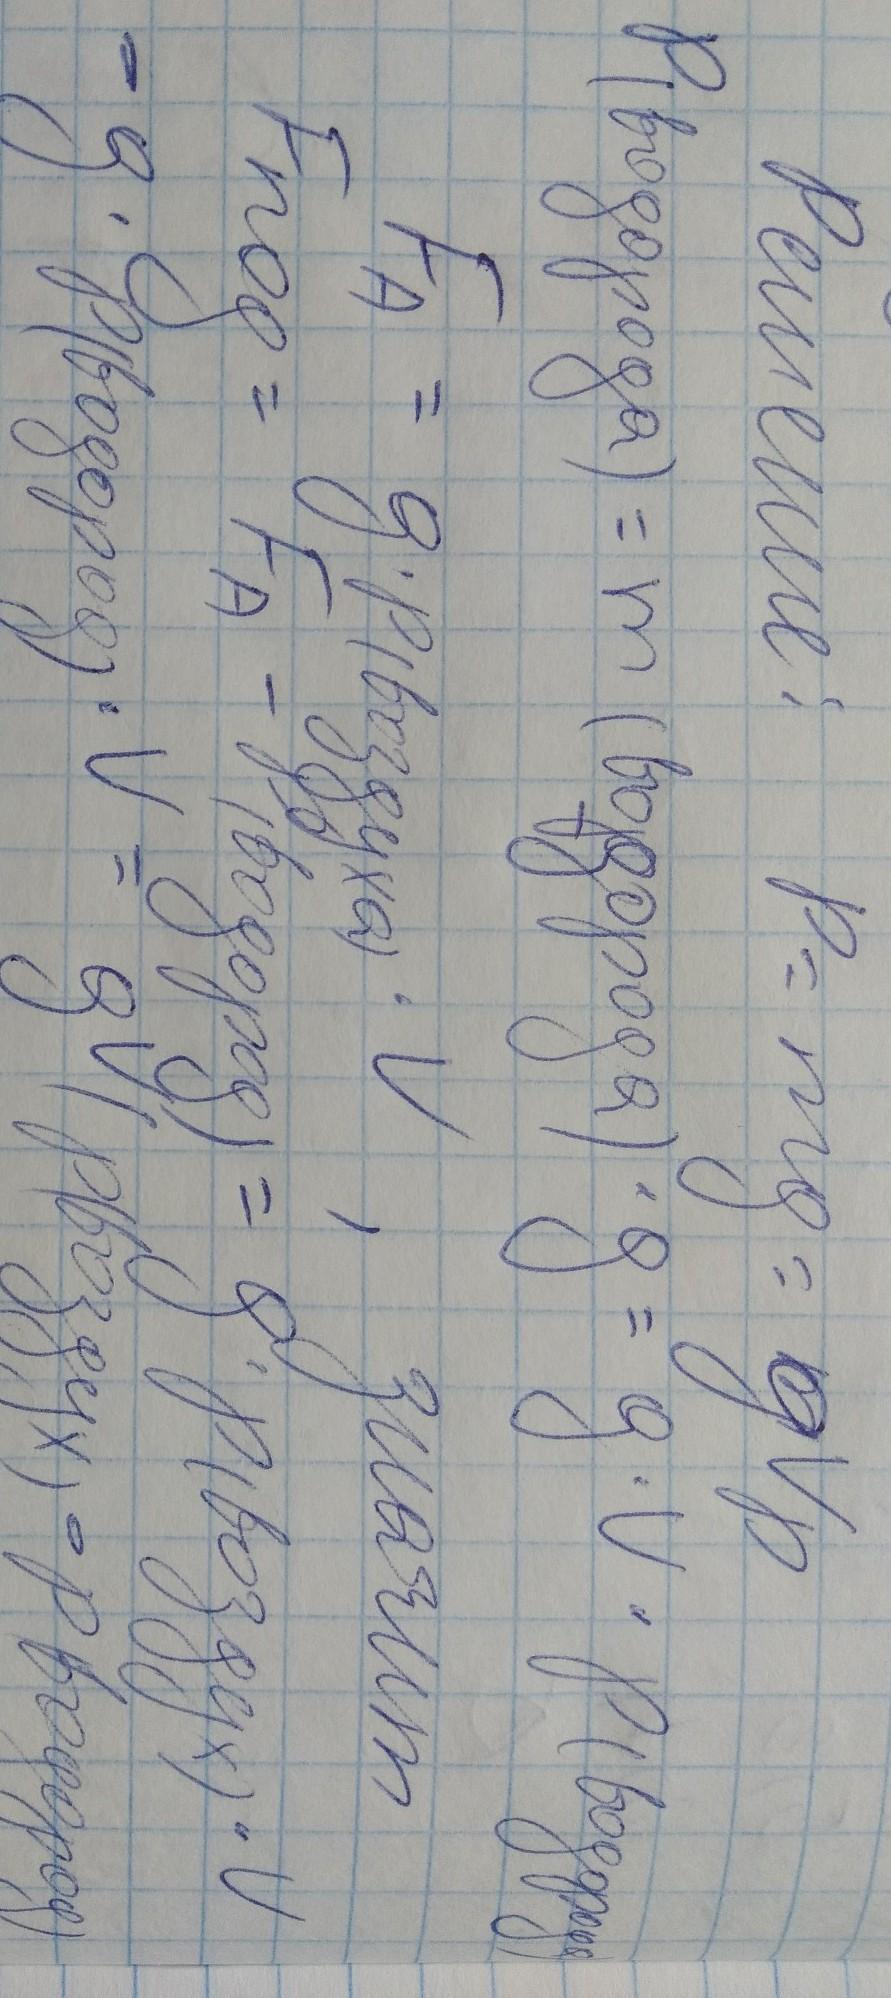 Решение: P = mg = gVρ
P(водорода) = m (водорода) · g = g · V · ρ(водорода)
FA = g · ρ(воздуха) · V , значит
Fпод = FA - P(водород) = g · ρ(воздух) · V
- g · ρ(водород) · V = gV(ρ(воздух) - ρ водород)